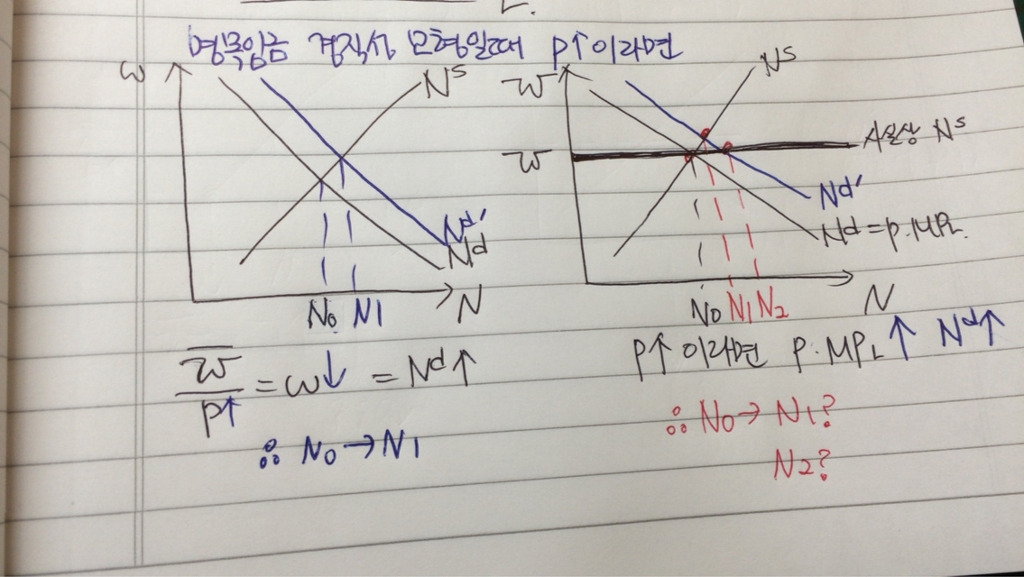 명목임금 경직성 모형일때 P↑이라면
w
Nˢ
Nᵈ′
Nᵈ
N₀ N1
N
W
Nˢ
W
사실상 Nˢ
Nᵈ′
Nᵈ=P·MPL
N₀ N1 N₂
N
W̅/P↑ = w↓ = Nᵈ↑
∴ N₀→N1
P↑ 이라면 P·MPL↑ Nᵈ↑
∴ N₀→ N1?
N2?